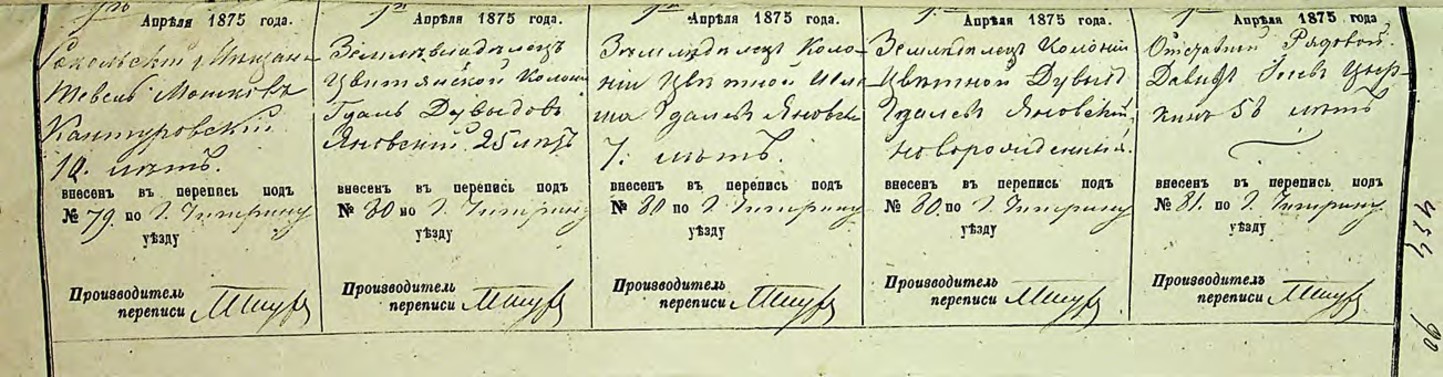 1го Апрѣля 1875 года.
Мѣщан
Тевель Мошковъ
Кантуровскій
10. лѣтъ.
внесенъ въ перепись подъ
№ 79. по г. Чигирину
уѣзду
Производитель
переписи
1го Апрѣля 1875 года.
Землевладѣлецъ
Цвитянской Колоніи
Гдаль Дувыдовъ
Яновскій 25 лѣтъ
внесенъ въ перепись подъ
№ 80 по г. Чигирину
уѣзду
Производитель
переписи
1го Апрѣля 1875 года.
Земледѣлецъ Коло-
ніи Цвѣтной
Гдалевъ Яновскій
7. лѣтъ.
внесенъ въ перепись подъ
№ 80 по г. Чигирину
уѣзду
Производитель
переписи
1го Апрѣля 1875 года.
Земледѣлецъ Колоніи
Цвѣтной Дувыд
Гдалевъ Яновскій
новорожденный.
внесенъ въ перепись подъ
№ 80. по г. Чигирину
уѣзду
Производитель
переписи
1го Апрѣля 1875 года
Отставной Рядовой.
Давидъ
58 лѣтъ
внесенъ въ перепись подъ
№ 81. по г. Чигирину
уѣзду
Производитель
переписи
454
90